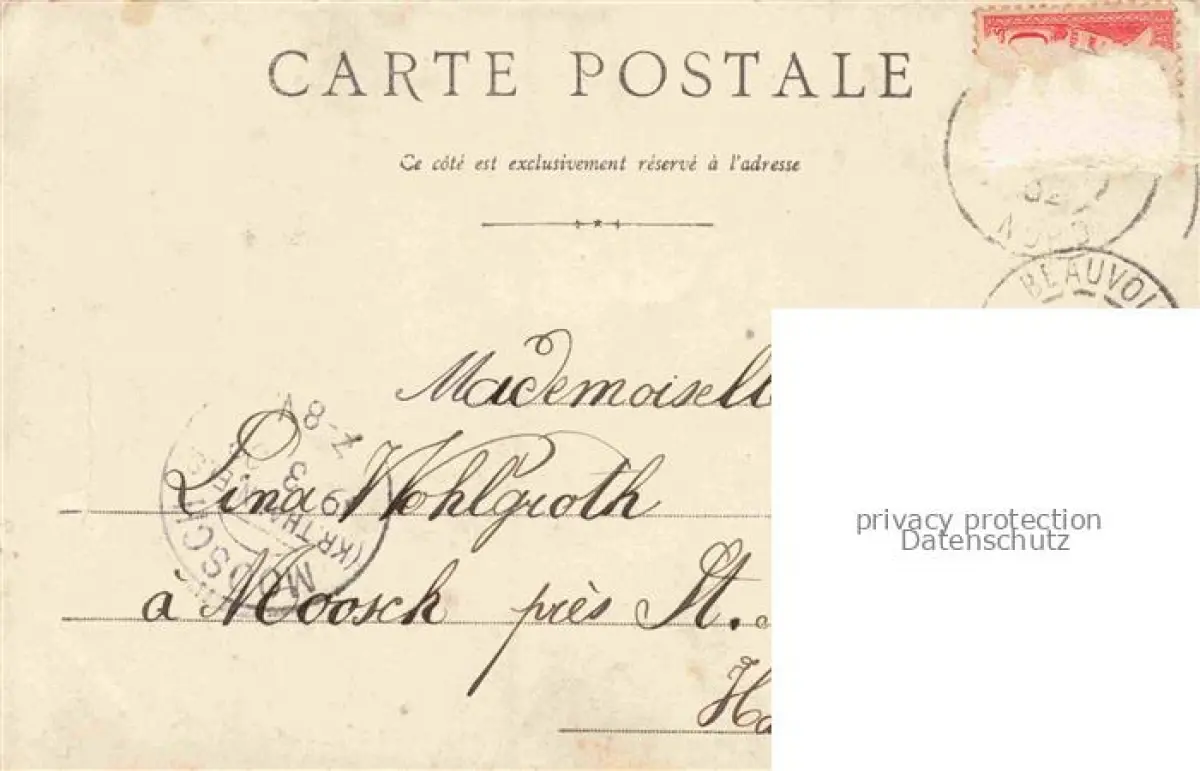 CARTE POSTALE
Ce côté est exclusivement réservé à l'adresse
02
NORD
BEAUVOI
Mademoisell
Lina Wohlgroth
à Moosch près St.
Ha
7-8V
3
(KR. THANN
MOOSCH
privacy protection
Datenschutz